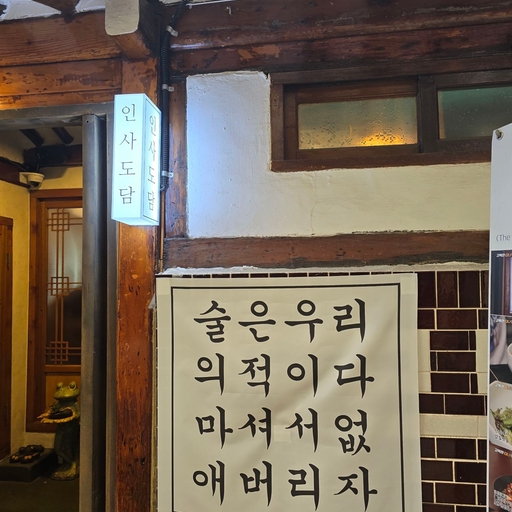 인사도담
인사도담
술은우리
의적이다
마셔서없
애버리자
(The